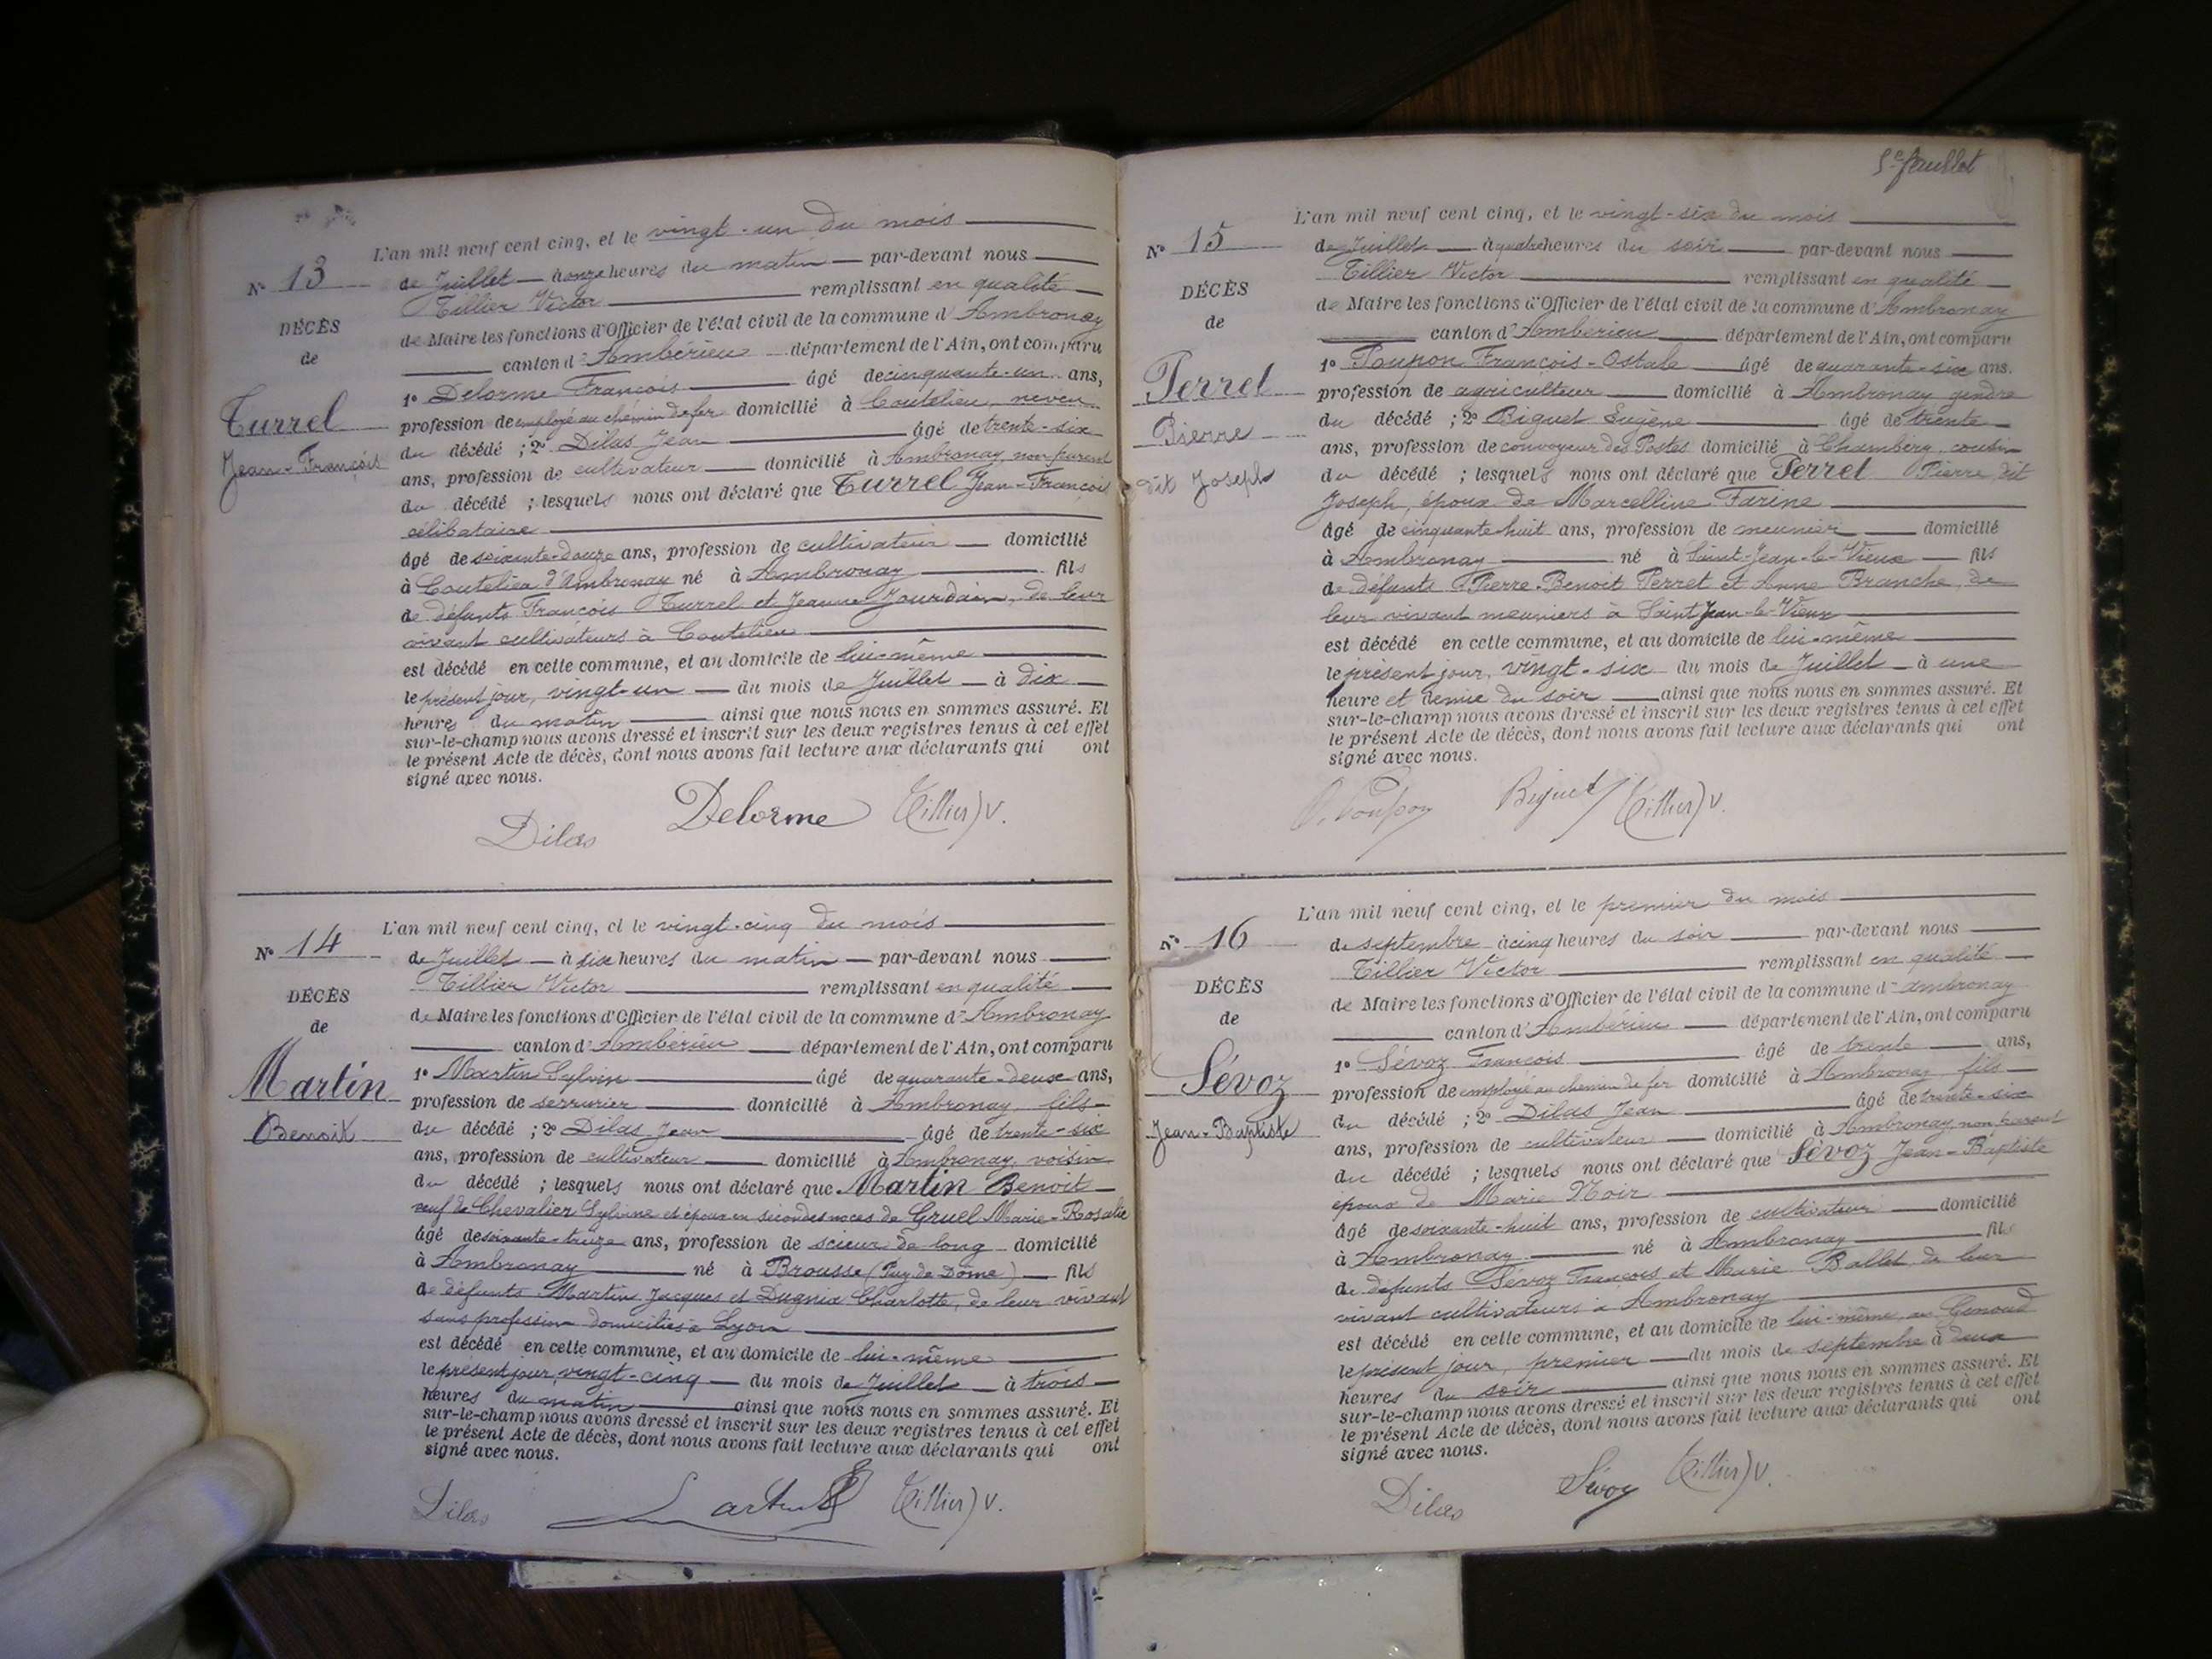 L'an mil neuf cent cinq, et le vingt-un du mois
N° 13
de Juillet à onze heures du matin par-devant nous
Tillier Victor remplissant en qualité
DÉCÈS
de Maire les fonctions d'Officier de l'état civil de la commune d'Ambronay
de
canton d'Ambérieu département de l'Ain, ont comparu
1° Delorme François âgé de cinquante-un ans,
Turrel
profession de employé au chemin de fer domicilié à Coutelieu, neveu
Jean-François
du décédé ; 2° Dilas Jean âgé de trente-six
ans, profession de cultivateur domicilié à Ambronay, non parent
du décédé ; lesquels nous ont déclaré que Turrel Jean-François
célibataire
âgé de soixante-douze ans, profession de cultivateur domicilié
à Coutelieu d'Ambronay né à Ambronay fils
de défunts François Turrel et Jeanne Jourdain, de leur
vivant cultivateurs à Coutelieu
est décédé en cette commune, et au domicile de lui-même
le présent jour, vingt-un du mois de Juillet à dix
heures du matin ainsi que nous nous en sommes assuré. Et
sur-le-champ nous avons dressé et inscrit sur les deux registres tenus à cet effet
le présent Acte de décès, dont nous avons fait lecture aux déclarants qui ont
signé avec nous.
Dilas Delorme Tillier V.
L'an mil neuf cent cinq, et le vingt-cinq du mois
N° 14
de Juillet à six heures du matin par-devant nous
Tillier Victor remplissant en qualité
DÉCÈS
de Maire les fonctions d'Officier de l'état civil de la commune d'Ambronay
de
canton d'Ambérieu département de l'Ain, ont comparu
Martin
1° Martin Sylvin âgé de quarante-deux ans,
profession de serrurier domicilié à Ambronay, fils
Benoit
du décédé ; 2° Dilas Jean âgé de trente-six
ans, profession de cultivateur domicilié à Ambronay, voisin
du décédé ; lesquels nous ont déclaré que Martin Benoit
veuf de Chevalier Sylvine et époux en secondes noces de Gruel Marie-Rosalie
âgé de soixante-treize ans, profession de scieur de long domicilié
à Ambronay né à Brousse (Puy de Dôme) fils
de défunts Martin Jacques et Dugnia Charlotte, de leur vivant
sans profession domiciliés à Lyon
est décédé en cette commune, et au domicile de lui-même
le présent jour, vingt-cinq du mois de Juillet à trois
heures du matin ainsi que nous nous en sommes assuré. Et
sur-le-champ nous avons dressé et inscrit sur les deux registres tenus à cet effet
le présent Acte de décès, dont nous avons fait lecture aux déclarants qui ont
signé avec nous.
Dilas Tillier V.
5e feuillet
L'an mil neuf cent cinq, et le vingt-six du mois
N° 15
de Juillet à quatre heures du soir par-devant nous
Tillier Victor remplissant en qualité
DÉCÈS
de Maire les fonctions d'Officier de l'état civil de la commune d'Ambronay
de
canton d'Ambérieu département de l'Ain, ont comparu
1° Poupon François-Ostale âgé de quarante-six ans.
Perret
profession de agriculteur domicilié à Ambronay gendre
du décédé ; 2° Biguet Eugène âgé de trente
Pierre
ans, profession de convoyeur des Postes domicilié à Chambéry, cousin
dit Joseph
du décédé ; lesquels nous ont déclaré que Perret Pierre, dit
Joseph, époux de Marcelline Farine
âgé de cinquante-huit ans, profession de meunier domicilié
à Ambronay né à Saint-Jean-le-Vieux fils
de défunts Pierre-Benoit Perret et Anne Branche, de
leur vivant meuniers à Saint Jean-le-Vieux
est décédé en cette commune, et au domicile de lui-même
le présent jour, vingt-six du mois de Juillet à une
heure et demie du soir ainsi que nous nous en sommes assuré. Et
sur-le-champ nous avons dressé et inscrit sur les deux registres tenus à cet effet
le présent Acte de décès, dont nous avons fait lecture aux déclarants qui ont
signé avec nous.
O. Poupon Biguet Tillier V.
L'an mil neuf cent cinq, et le premier du mois
N° 16
de septembre à cinq heures du soir par-devant nous
Tillier Victor remplissant en qualité
DÉCÈS
de Maire les fonctions d'Officier de l'état civil de la commune d'ambronay
de
canton d'Ambérieu département de l'Ain, ont comparu
1° Sévoz François âgé de trente ans,
Sévoz
profession de employé au chemin de fer domicilié à Ambronay fils
Jean-Baptiste
du décédé ; 2° Dilas Jean âgé de trente-six
ans, profession de cultivateur domicilié à Ambronay non parent
du décédé ; lesquels nous ont déclaré que Sévoz Jean-Baptiste
époux de Marie Noir
âgé de soixante-huit ans, profession de cultivateur domicilié
à Ambronay né à Ambronay fils
de défunts Sévoz François et Marie Ballet de leur
vivant cultivateurs à Ambronay
est décédé en cette commune, et au domicile de lui-même, au Genoud
le présent jour, premier du mois de septembre à deux
heures du soir ainsi que nous nous en sommes assuré. Et
sur-le-champ nous avons dressé et inscrit sur les deux registres tenus à cet effet
le présent Acte de décès, dont nous avons fait lecture aux déclarants qui ont
signé avec nous.
Dilas Sévoz Tillier V.